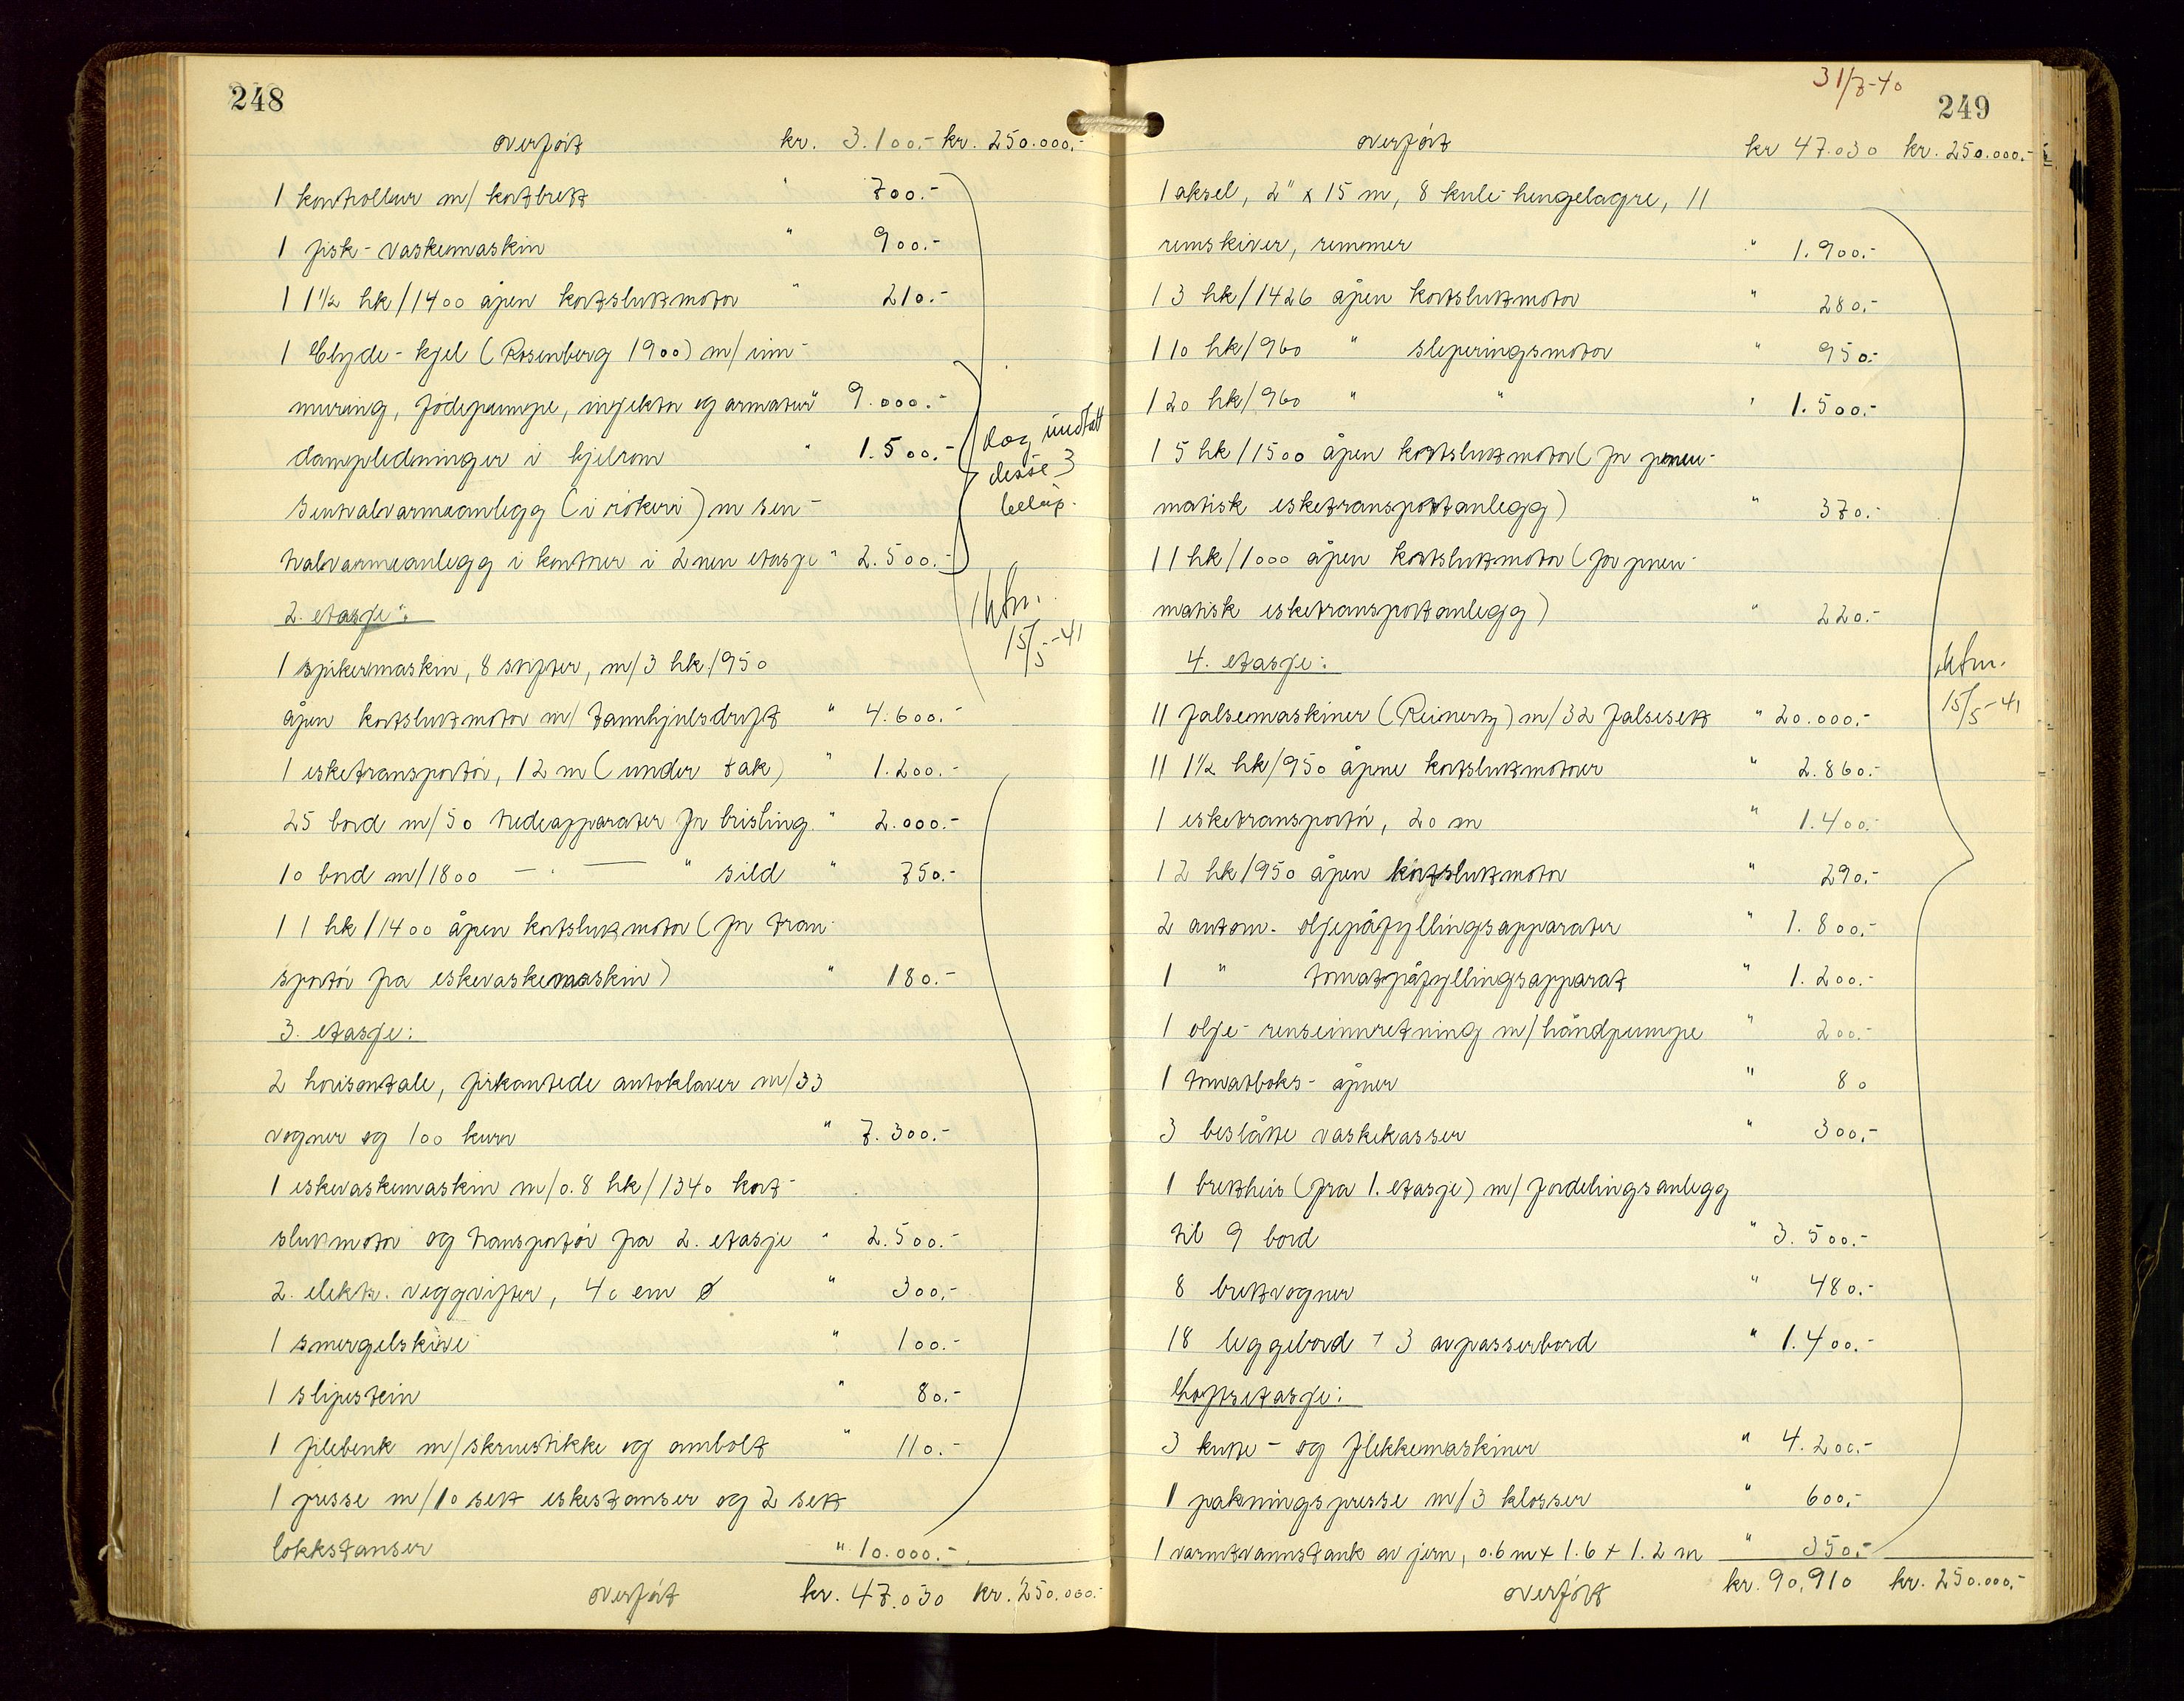 248
overfört kr. 3.100.- kr. 250.000.-
1 kontrollur m/ kortbrett " 700.-
1 fisk-vaskemaskin " 900.-
1 1½ hk/1400 åpen kortsluttmotor " 210.-
1 Clyde-kjel (Rosenberg 1900) m/ inn-
muring, födepumpe, injektor og armatur " 9.000.-
dampledninger i kjelrom " 1.500.-
Sentralvarmeanlegg (i rökeri) m sen-
tralvarmeanlegg i kontorer i 2nen etasje " 2.500.-
dog undtatt
disse 3
belöp.
2. etasje:
15/5-41
1 spikermaskin, 8 stifter, m/3 hk/950
åpen kortsluttmotor m/ tannhjulsdrift " 4.600.-
1 esketransportör, 12 m (under tak) " 1.200.-
25 bord m/50 tredeapparater for brisling " 2.000.-
10 bord m/1800 - " - " sild " 750.-
1 1 hk/1400 åpen kortsluttmotor (for tran-
sportör fra eskevaskemaskin) " 180.-
3. etasje:
2 horisontale, firkantede autoklaver m/33
vogner og 100 kurver " 7.300.-
1 eskevaskemaskin m/0.8 hk/1340 kort-
sluttmotor og transportör fra 2. etasje " 2.500.-
2 elektr. veggvifter, 40 cm ø " 300.-
1 smergelskive " 100.-
1 slipestein " 80.-
1 filebenk m/skruestikke og ambolt " 110.-
1 presse m/10 sett eskestanser og 2 sett
lokkstanser " 10.000.-
overfört kr. 47.030 kr. 250.000.-
31/7-40
249
overfört kr 47.030 kr. 250.000.-
1 aksel, 2" x 15 m, 8 kule-hengelagre, 11
remskiver, remmer " 1.900.-
1 3 hk/1426 åpen kortsluttmotor " 280.-
1 10 hk/960 " sleperingsmotor " 950.-
1 20 hk/960 " " " 1.500.-
1 5 hk/1500 åpen kortsluttmotor (for pneu-
matisk esketransportanlegg) " 370.-
1 1 hk/1000 åpen kortsluttmotor (for pneu-
matisk esketransportanlegg) " 220.-
4. etasje:
15/5-41
11 falsemaskiner (Reinertz) m/32 falsesett " 20.000.-
11 1½ hk/950 åpne kortsluttmotorer " 2.860.-
1 esketransportör, 20 m " 1.400.-
1 2 hk/950 åpen kortsluttmotor " 290.-
2 autom. oljepåfyllingsapparater " 1.800.-
1 " tomatpåfyllingsapparat " 1.200.-
1 olje-renseinnretning m/håndpumpe " 200.-
1 tomatboks-åpner " 80
3 beslåtte vaskekasser " 300.-
1 brettheis (fra 1. etasje) m/fordelingsanlegg
til 9 bord " 3.500.-
8 brettvogner " 480.-
18 leggebord + 3 avpasserbord " 1.400.-
Loftsetasje:
3 kutte- og flekkemaskiner " 4.200.-
1 pakningspresse m/3 klosser " 600.-
1 varmtvannstank av jern, 0.6 m x 1.6 x 1.2 m " 350.-
overfört kr. 90,910 kr. 250.000.-